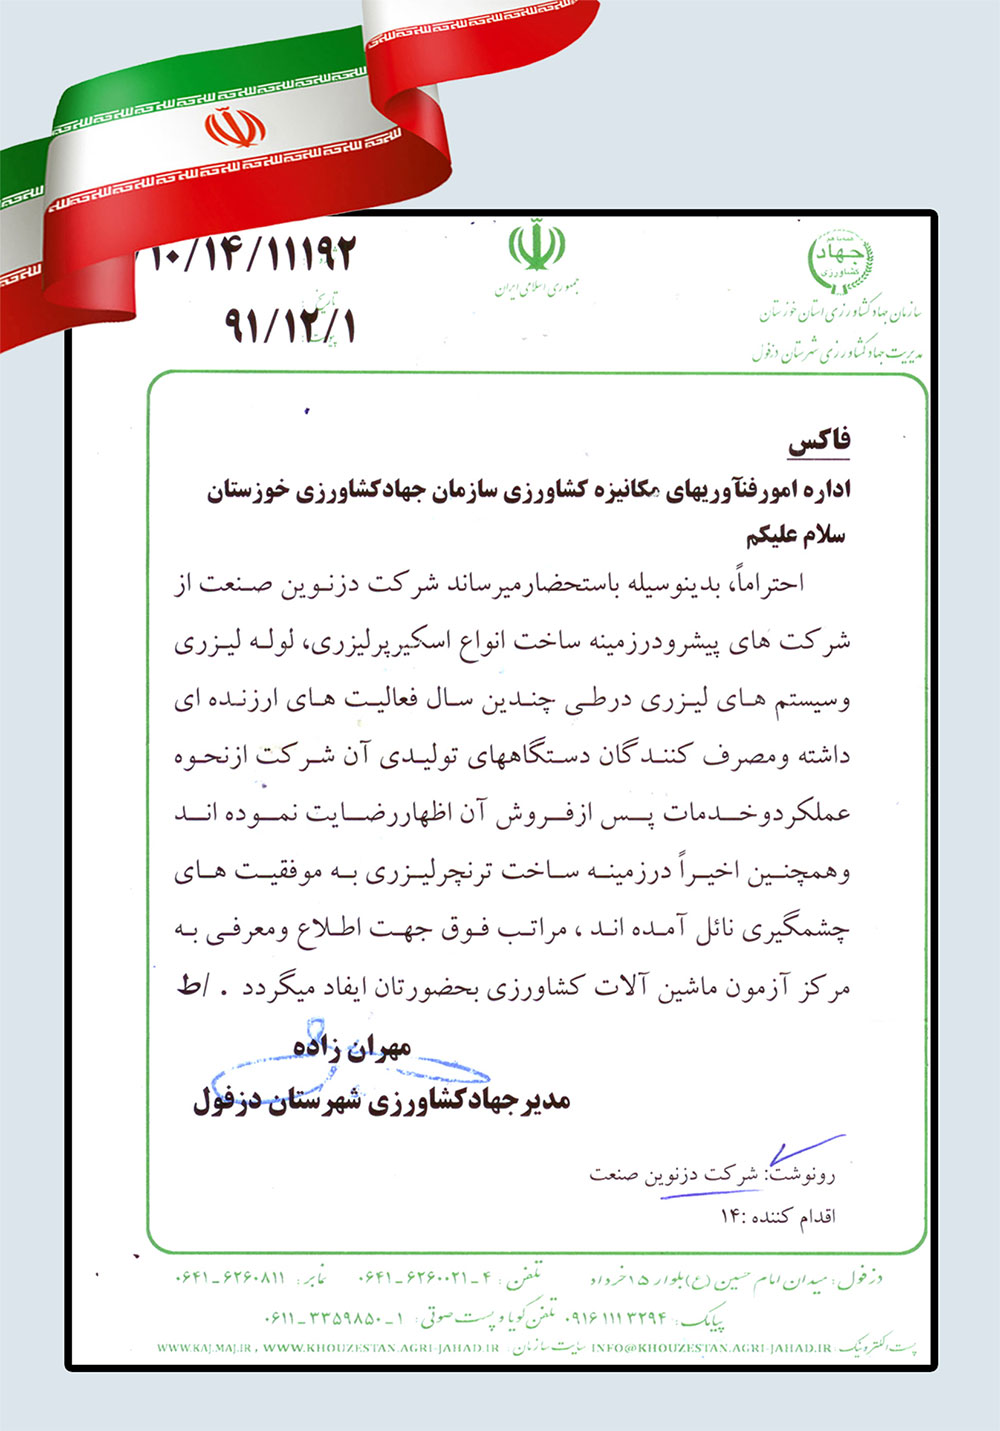 جهاد
کشاورزی
جمهوری اسلامی ایران
سازمان جهاد کشاورزی استان خوزستان
مدیریت جهاد کشاورزی شهرستان دزفول
/۱۰/۱۴/۱۱۱۹۲
تاریخ
۹۱/۱۲/۱
پیوست:
فاکس
اداره امورفنآوریهای مکانیزه کشاورزی سازمان جهادکشاورزی خوزستان
سلام علیکم
احتراماً، بدینوسیله باستحضارمیرساند شرکت دزنوین صنعت از
شرکت های پیشرودرزمینه ساخت انواع اسکیرپرلیزری، لوله لیزری
وسیستم های لیزری درطی چندین سال فعالیت های ارزنده ای
داشته ومصرف کنندگان دستگاههای تولیدی آن شرکت ازنحوه
عملکردوخدمات پس ازفروش آن اظهاررضایت نموده اند
وهمچنین اخیراً درزمینه ساخت ترنچرلیزری به موفقیت های
چشمگیری نائل آمده اند ، مراتب فوق جهت اطلاع ومعرفی به
مرکز آزمون ماشین آلات کشاورزی بحضورتان ایفاد میگردد . /ط
مهران زاده
مدیرجهادکشاورزی شهرستان دزفول
رونوشت: شرکت دزنوین صنعت
اقدام کننده :۱۴
دزفول: میدان امام حسین (ع) بلوار ۱۵ خرداد تلفن: ۴-۶۲۶۰۰۲۱-۰۶۴۱ نمابر: ۶۲۶۰۸۱۱-۰۶۴۱
پیامک: ۰۹۱۶۱۱۱۳۲۹۴ تلفن گویا و پست صوتی: ۱-۳۳۵۹۸۵۰-۰۶۱۱
پست الکترونیک: INFO@KHOUZESTAN.AGRI-JAHAD.IR سایت سازمان: WWW.KAJ.MAJ.IR , WWW.KHOUZESTAN.AGRI-JAHAD.IR